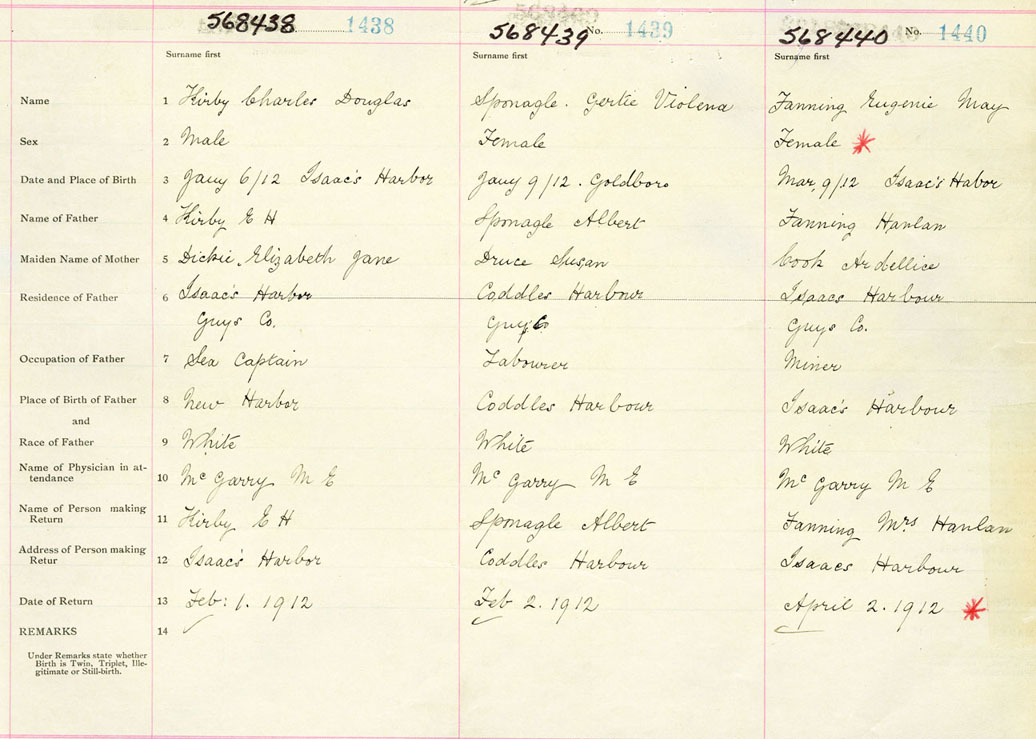 568438 1438 568439 No. 1439 568440 No. 1440
Surname first Surname first Surname first
Name 1 Kirby Charles Douglas Sponagle. Gertie Violena Fanning Eugenie May
Sex 2 Male Female Female
Date and Place of Birth 3 Jany 6/12 Isaac's Harbor Jany 9/12. Goldboro Mar, 9/12 Isaac's Habor
Name of Father 4 Kirby E H Sponagle Albert Fanning Hanlan
Maiden Name of Mother 5 Dickie, Elizabeth Jane Druce Susan Cook Ardellice
Residence of Father 6 Isaac's Harbor Coddles Harbour Isaacs Harbour
Guys Co. Guys Co Guys Co.
Occupation of Father 7 Sea Captain Labourer Miner
Place of Birth of Father 8 New Harbor Coddles Harbour Isaac's Harbour
and
Race of Father 9 White White White
Name of Physician in at-
tendance 10 Mc Garry M E Mc Garry M E Mc Garry M E
Name of Person making
Return 11 Kirby E H Sponagle Albert Fanning Mrs Hanlan
Address of Person making
Retur 12 Isaac's Harbor Coddles Harbour Isaacs Harbour
Date of Return 13 Feb: 1. 1912 Feb 2. 1912 April 2. 1912
REMARKS 14
Under Remarks state whether
Birth is Twin, Triplet, Ille-
gitimate or Still-birth.